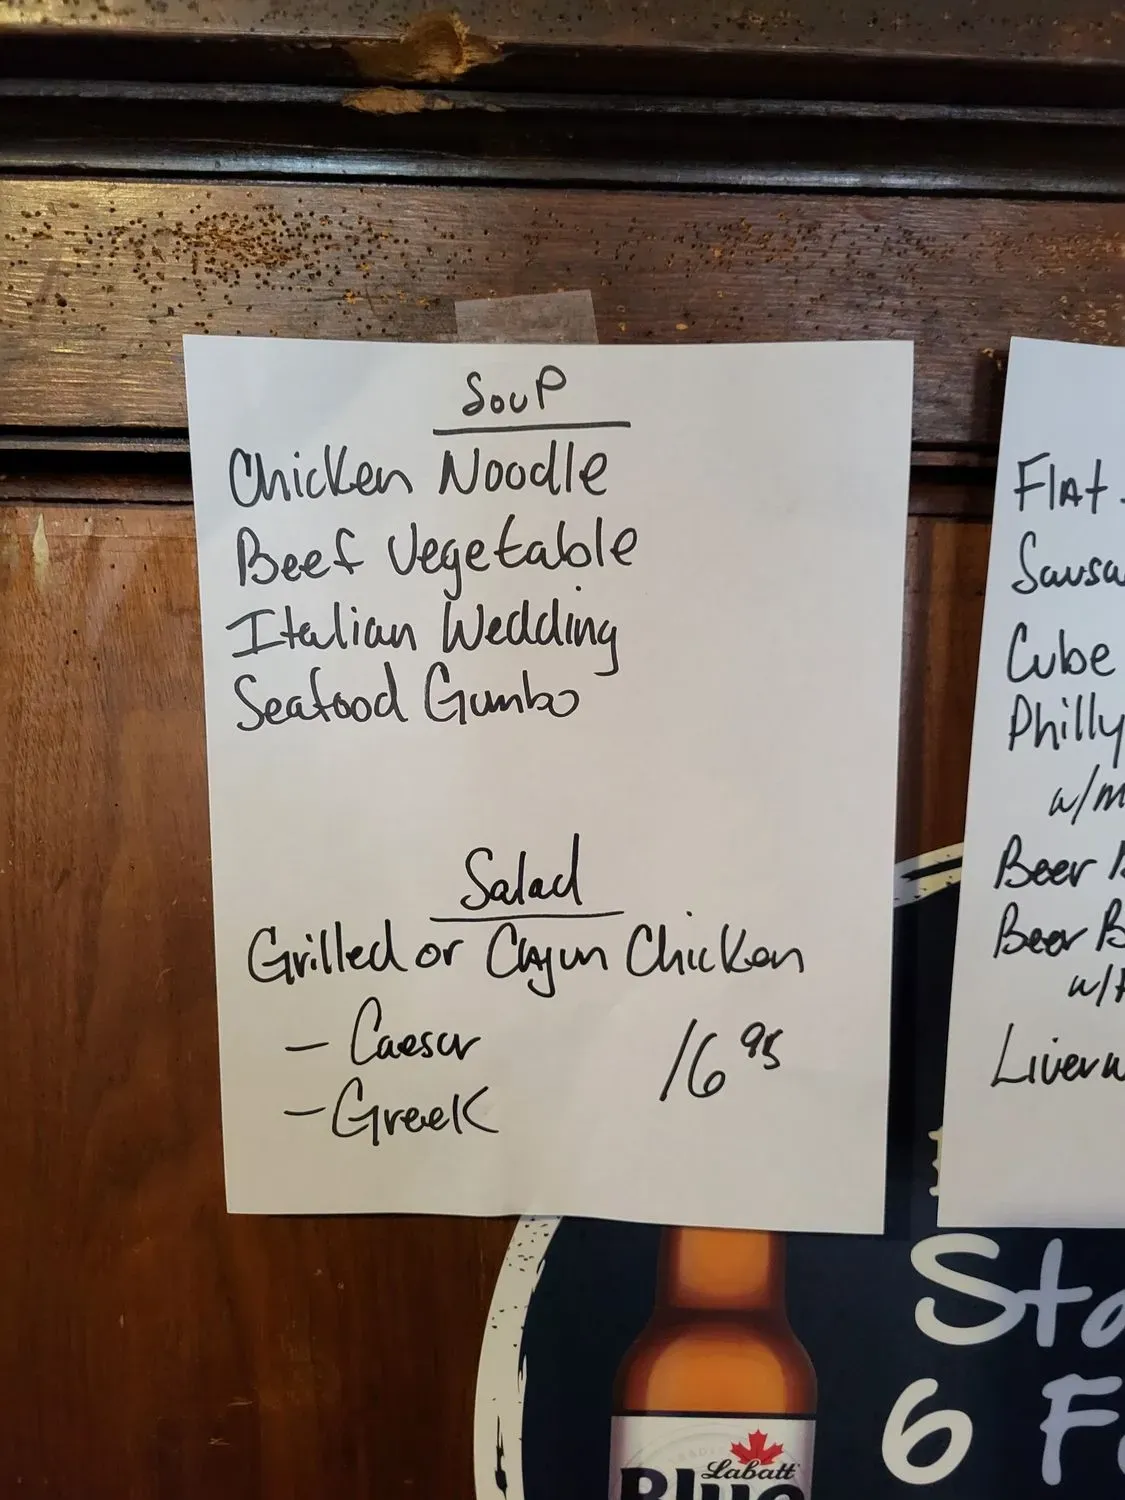 Soup
Chicken Noodle
Beef Vegetable
Italian Wedding
Seafood Gumbo
Salad
Grilled or Cajun Chicken
- Caesar
16 95
- Greek
Flat
Cube
Philly
Beer
Beer
6
Labatt
Blue